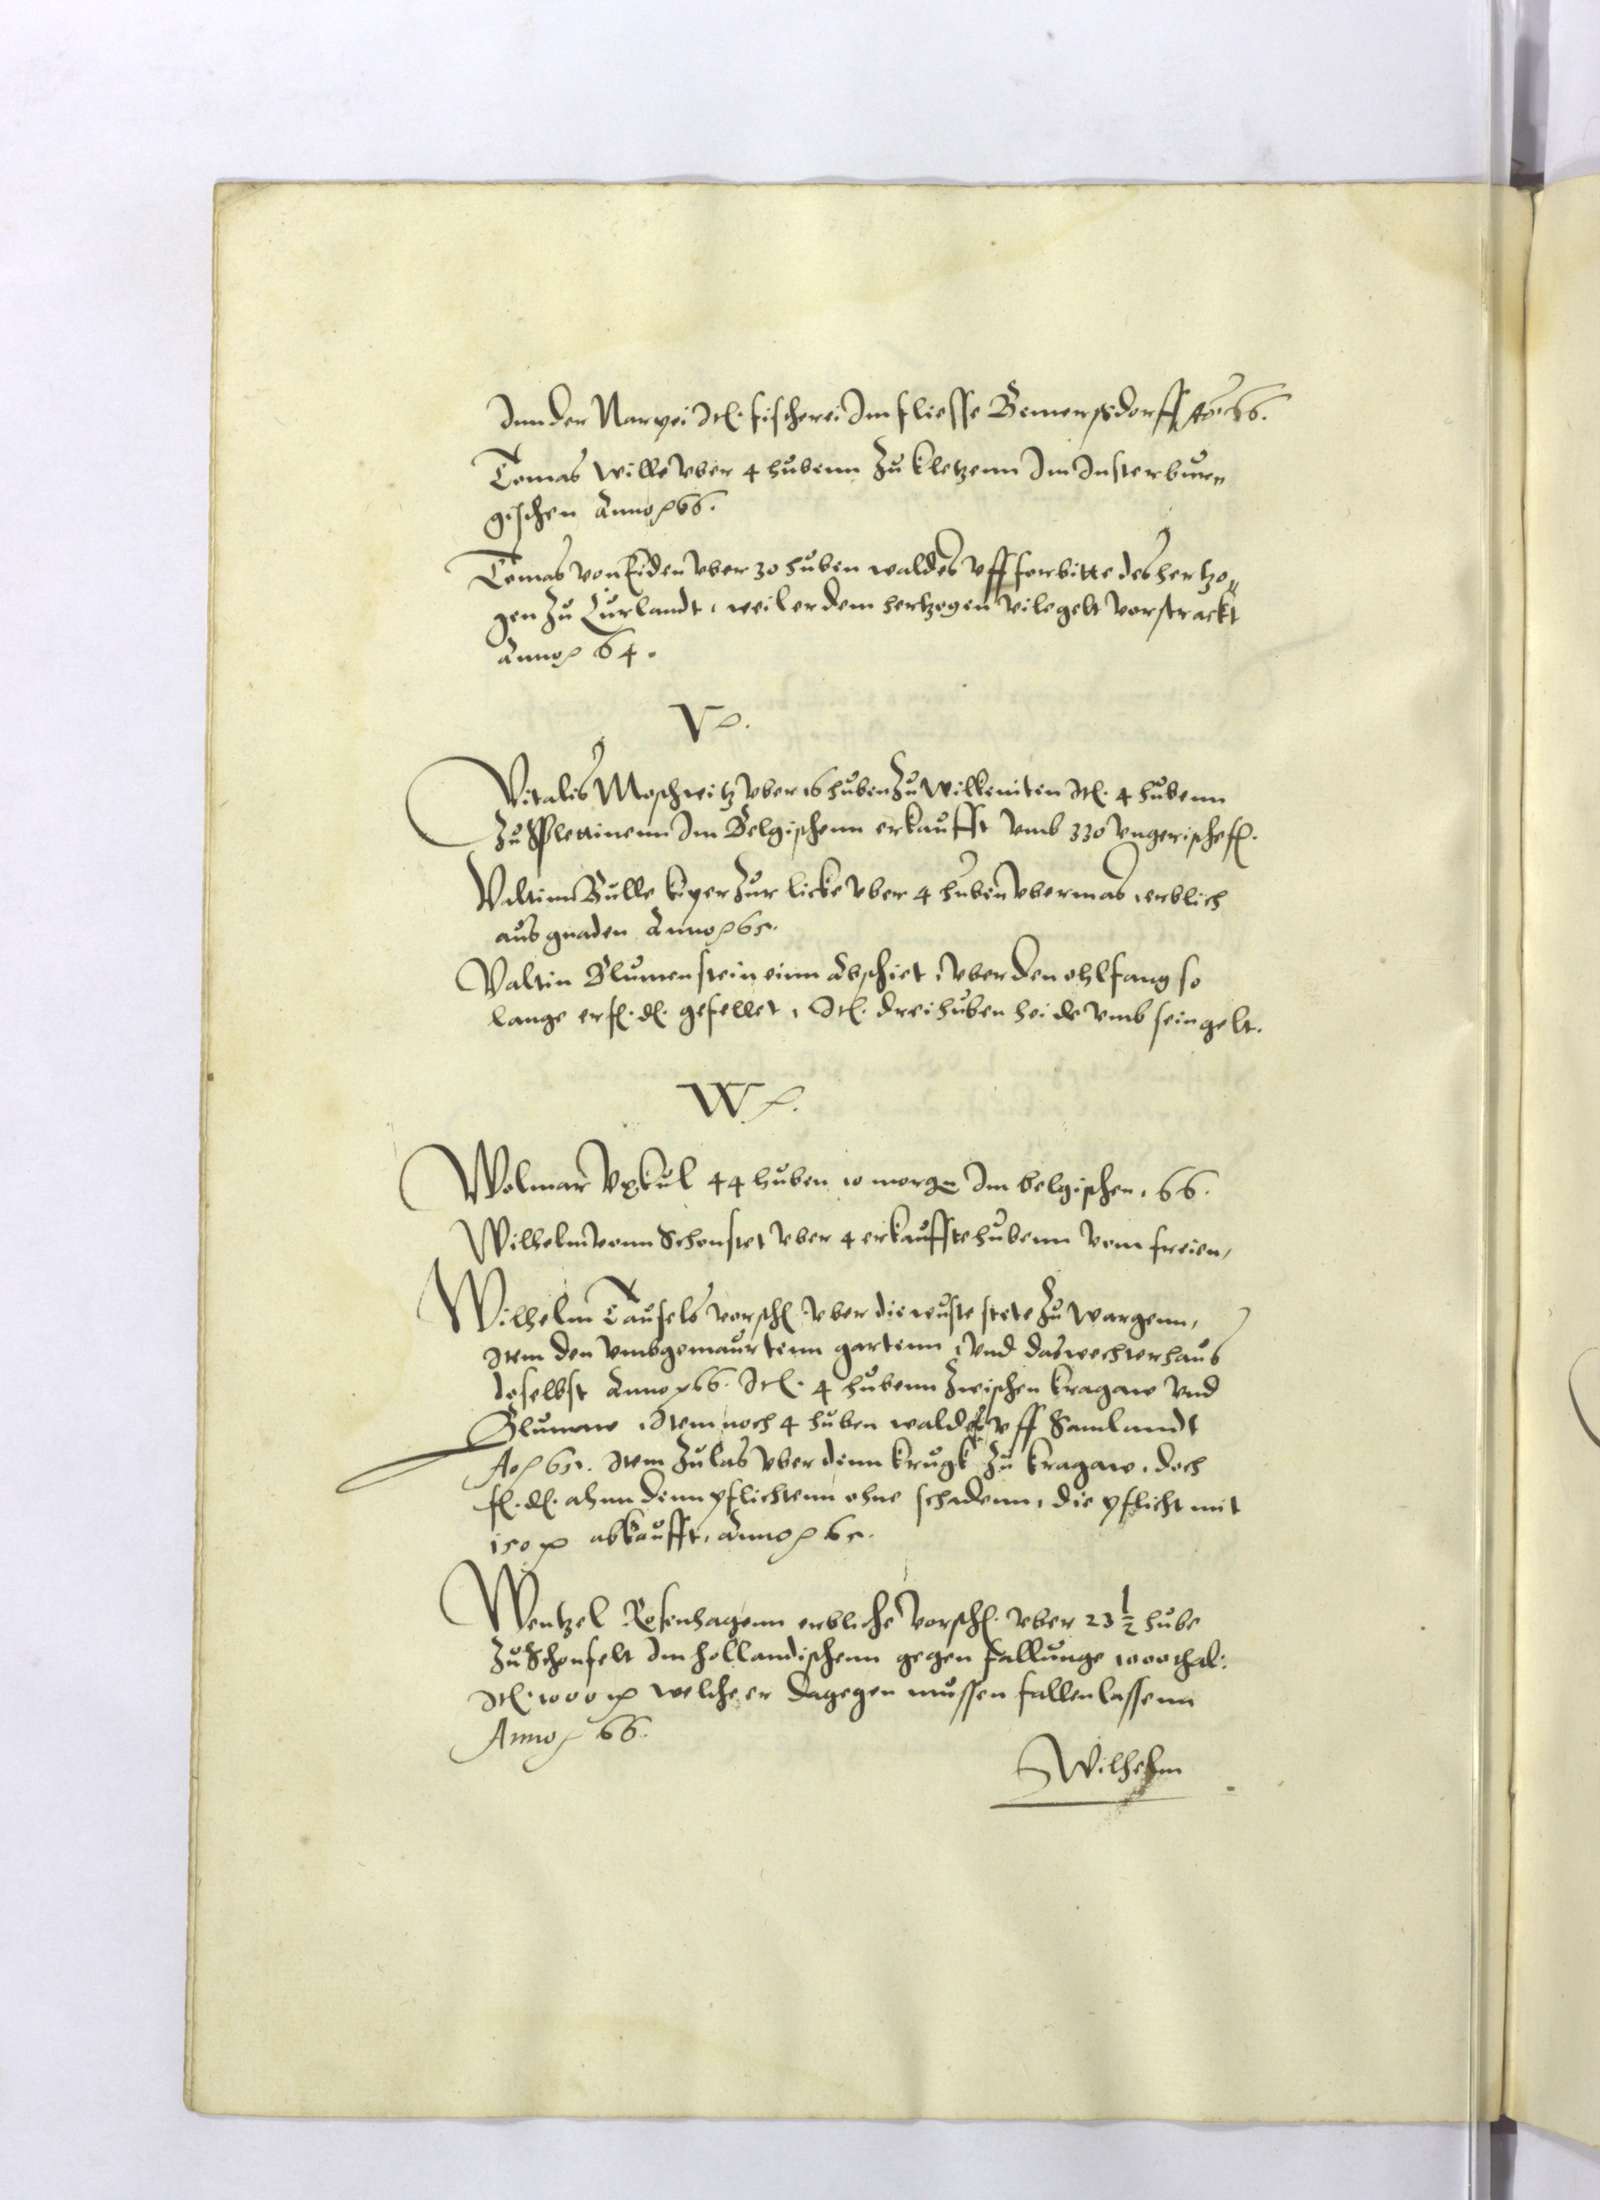 Inn der Narpei Itl. fischerei Im fliesse Bemerssdorff Ao. 66.
Tomas Wille vber 4 hubenn Zu kletzenn Im Insterbur„
gischen Anno 66.
Tomas von Eiden vber 30 huben waldes vff forbitte des hertzo„
gen Zu Curlandt, weil er dem hertzogen vile gelt vorstrackt
Anno 64.
V.
Vitalis Moschwitz vber 16 huben Zu Willeniten Itl. 4 hubenn
Zu Im Belgischenn erkaufft vmb 330 vngerische fl.
Valtinn Bulle kiper Zur licke vber 4 huben vbermas, erblich
aus gnaden Anno 65.
Valtin Blumenstein einn Abschiet, vber den ohlfang so
lange er fl. dl. gefellet, Itl. drei huben heide vmb sein gelt.
W.
Wolmar Vxkul 44 huben 10 morgen Im belgischen, 66.
Wilhelm vonn Schonstet vber 4 erkauffte hubenn vom freien,
Wilhelm Taufels vorschl. vber die wuste stete Zu Wargenn,
Item den vmbgemaurtenn gartenn, vnd das wechterhaus
doselbst Anno 66. Itl. 4 hubenn Zwischen kragaw vnd
Blumaw, Item noch 4 huben waldes vff Samlandt
Ao 65. Item Zulas vber denn krugk Zu kragaw, doch
fl. dl. ahnn denn pflichtenn ohne schadenn, die pflicht mit
150 abkaufft, Anno 65.
Wentzel Rosenhagenn erbliche vorschl. vber 23 1/2 hube
Zu Schonfelt Im hollandischenn gegen fallunge 1000 thal:
Itl. 1000 welche er dagegen mussen fallen lassenn
Anno 66.
Wilhelm